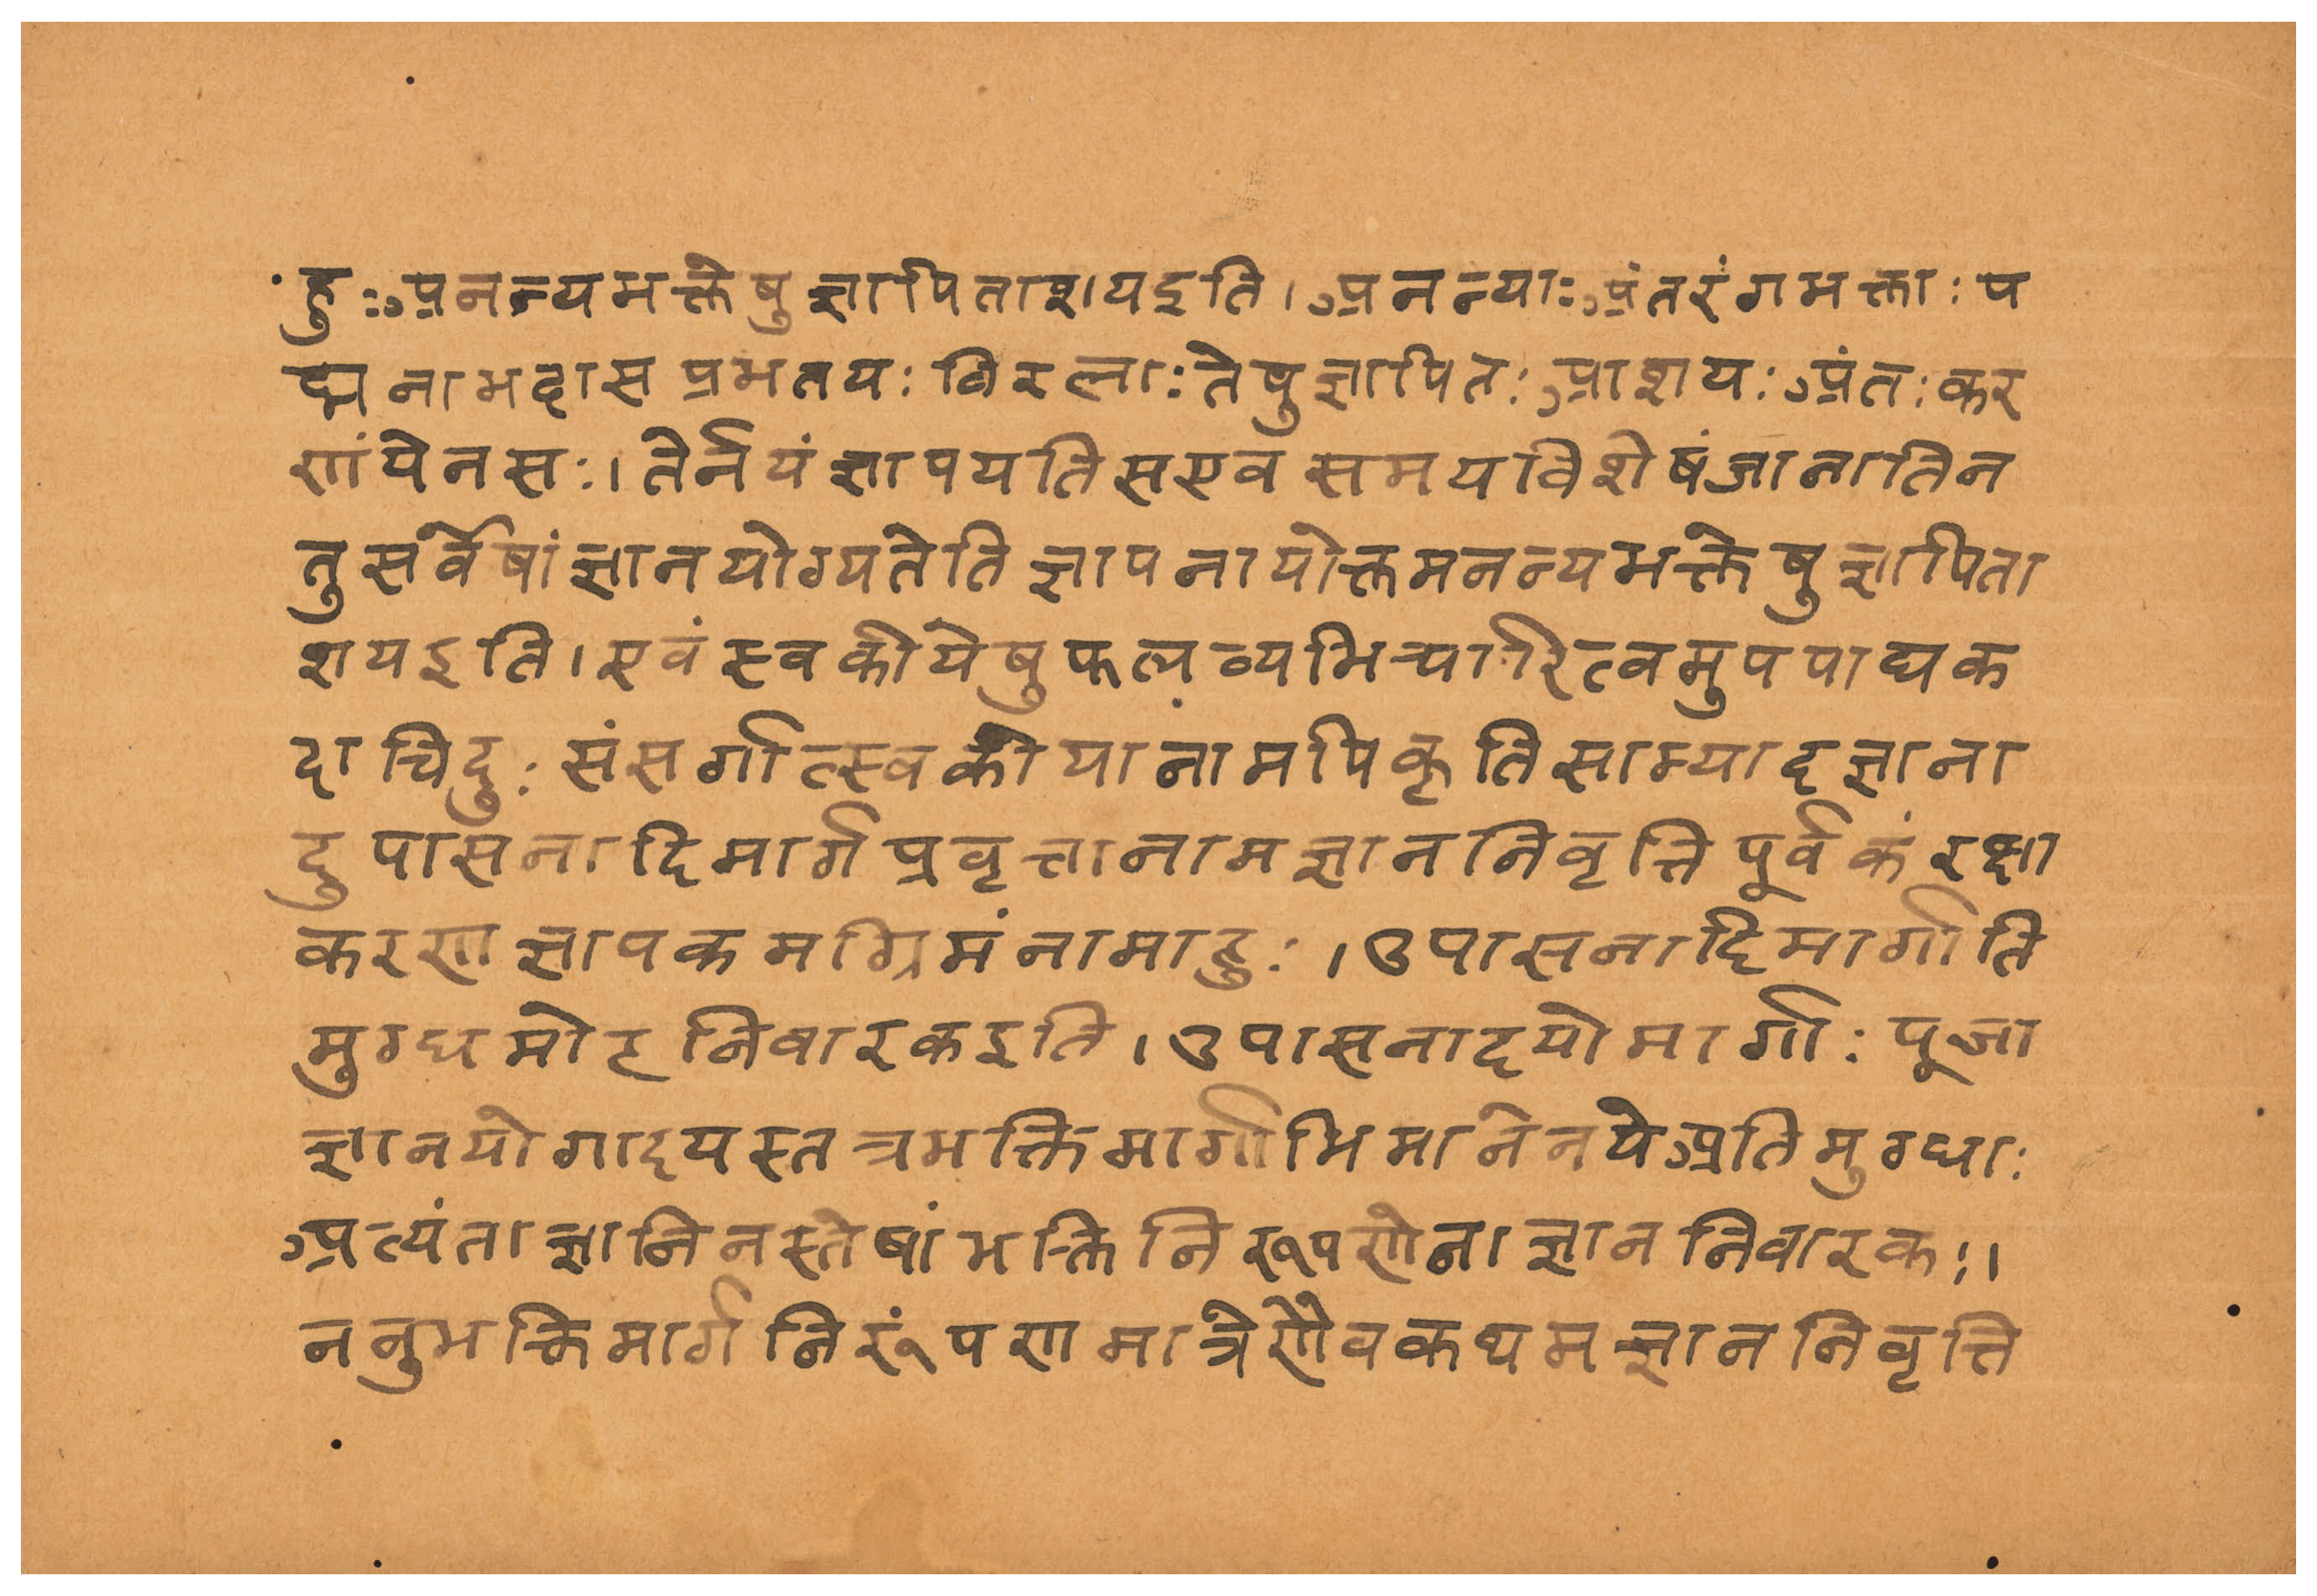 हुःअनन्यभक्तेषुज्ञापिताशयइति।अनन्याःअंतरंगभक्ताःप
द्मनाभदासप्रभतयःविरलाःतेषुज्ञापितःआशयःअंतःकर
णांयेनसः।तेर्नयंज्ञापयतिसएवसमयविशेषंजानातिन
तुसर्वेषांज्ञानयोग्यतेतिज्ञापनायोक्तमनन्यभक्तेषुज्ञापिता
शयइति।एवंस्वकीयेषुफलाव्यभिचारित्वमुपपाद्यक
दाचिदुःसंसर्गात्स्वकीयानामपिकृतिसाम्यादज्ञाना
दुपासनादिमार्गप्रवृत्तानामज्ञाननिवृत्तिपूर्वकंरक्षा
करणज्ञापकमग्रिमंनामाहुः।उपासनादिमार्गाति
मुग्धमोहनिवारकइति।उपासनादयोमार्गाःपूजा
ज्ञानयोगादयस्तत्रभक्तिमार्गाभिमानेनयेअतिमुग्धाः
अत्यंताज्ञानिनस्तेषांभक्तिनिरूपणेनाज्ञाननिवारकः।
ननुभक्तिमार्गनिरूंपणमात्रेणैवकथमज्ञाननिवृत्ति